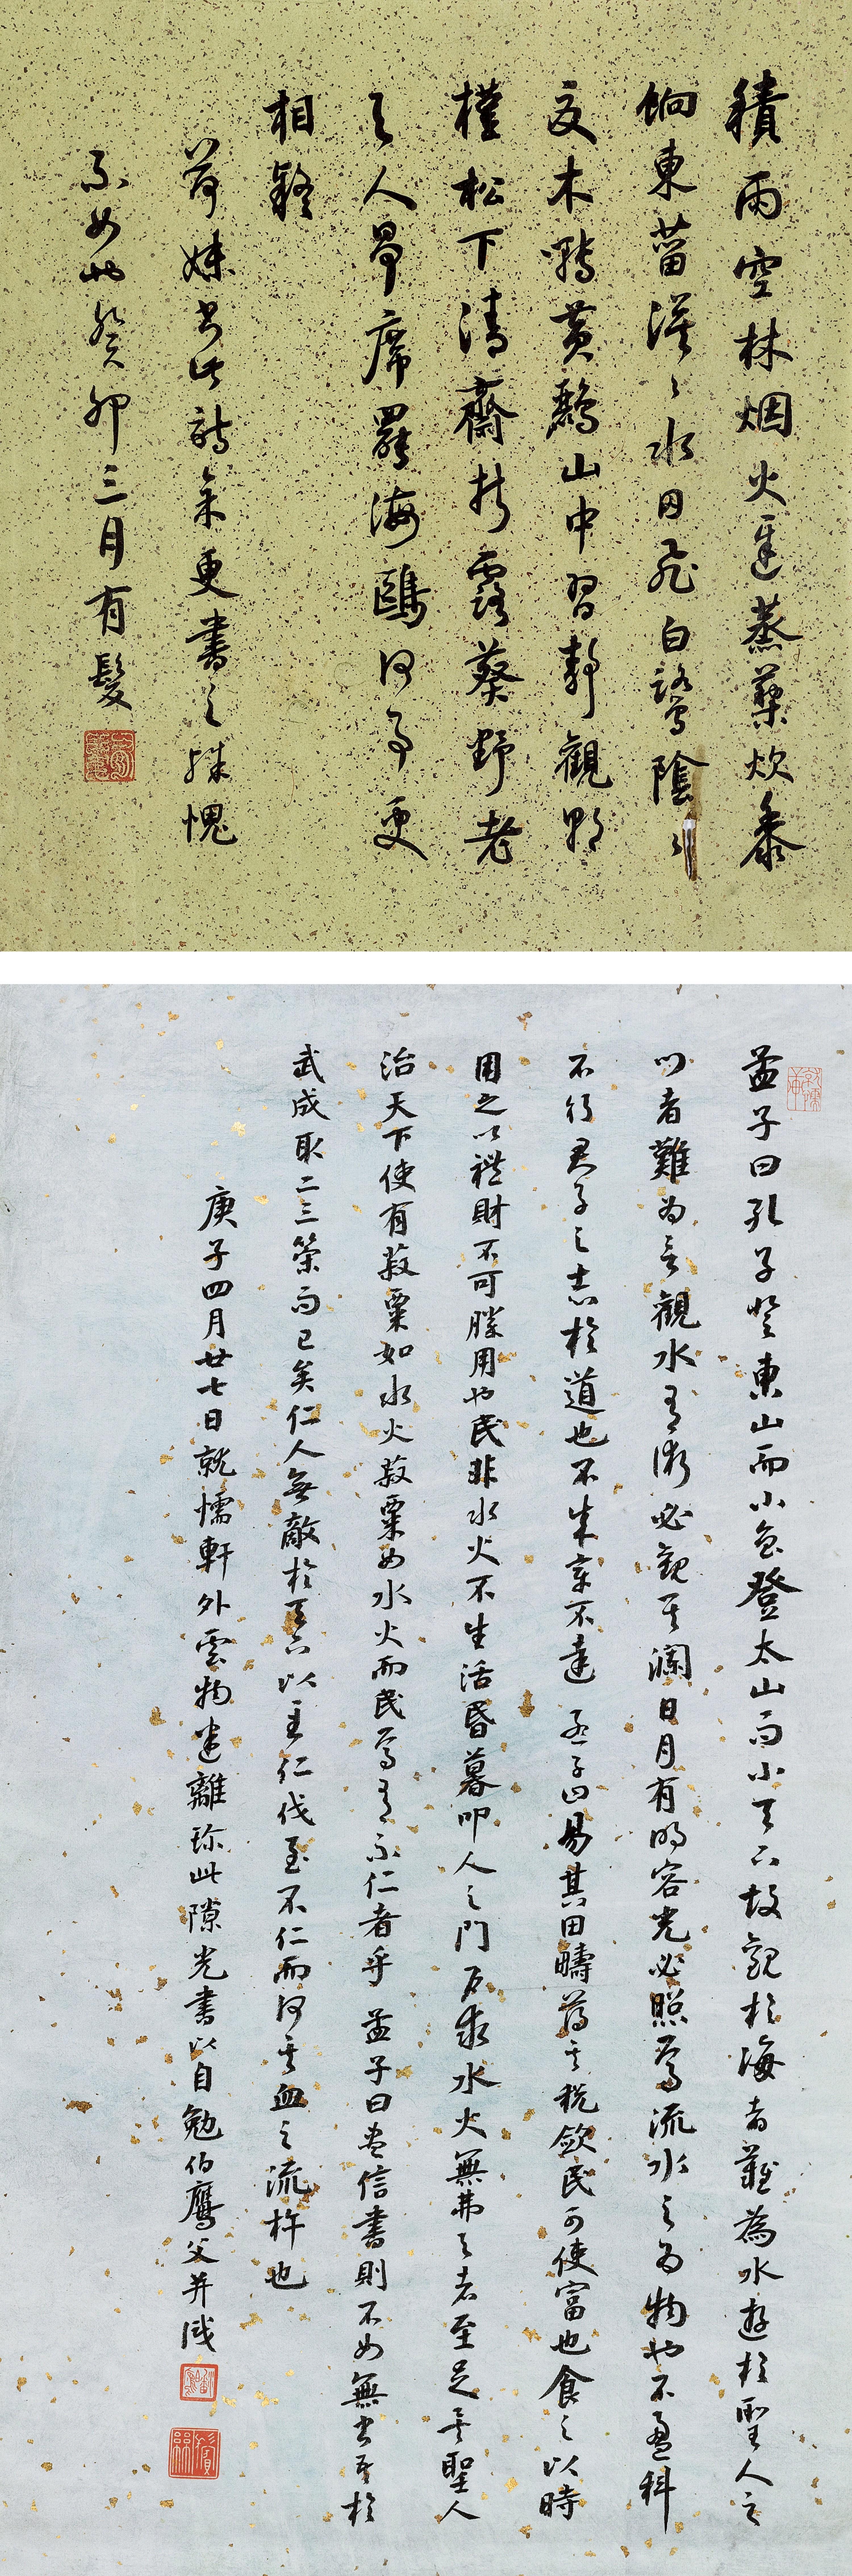 積雨空林烟火遲蒸藜炊黍
餉東菑漠〻水田飛白鷺陰〻
夏木囀黃鸝山中習靜觀朝
槿松下清齋折露葵野老
与人爭席罷海鷗何事更
相疑
荷妹書此詩更書之殊愧
不如也癸卯三月有髮
孟子曰孔子登東山而小魯登太山而小天下故觀於海者難為水遊於聖人之
門者難為言觀水有術必觀其瀾日月有明容光必照焉流水之為物也不盈科
不行君子之志於道也不成章不達 孟子曰易其田疇薄其稅斂民可使富也食之以時
用之以禮財不可勝用也民非水火不生活昏暮叩人之門戶求水火無弗与者至足矣聖人
治天下使有菽粟如水火菽粟如水火而民焉有不仁者乎 孟子曰盡信書則不如無書吾於
武成取二三策而已矣仁人無敵於天下以至仁伐至不仁而何其血之流杵也
庚子四月廿七日就懦軒外雲物迷離珍此隙光書以自勉伯鷹父并識